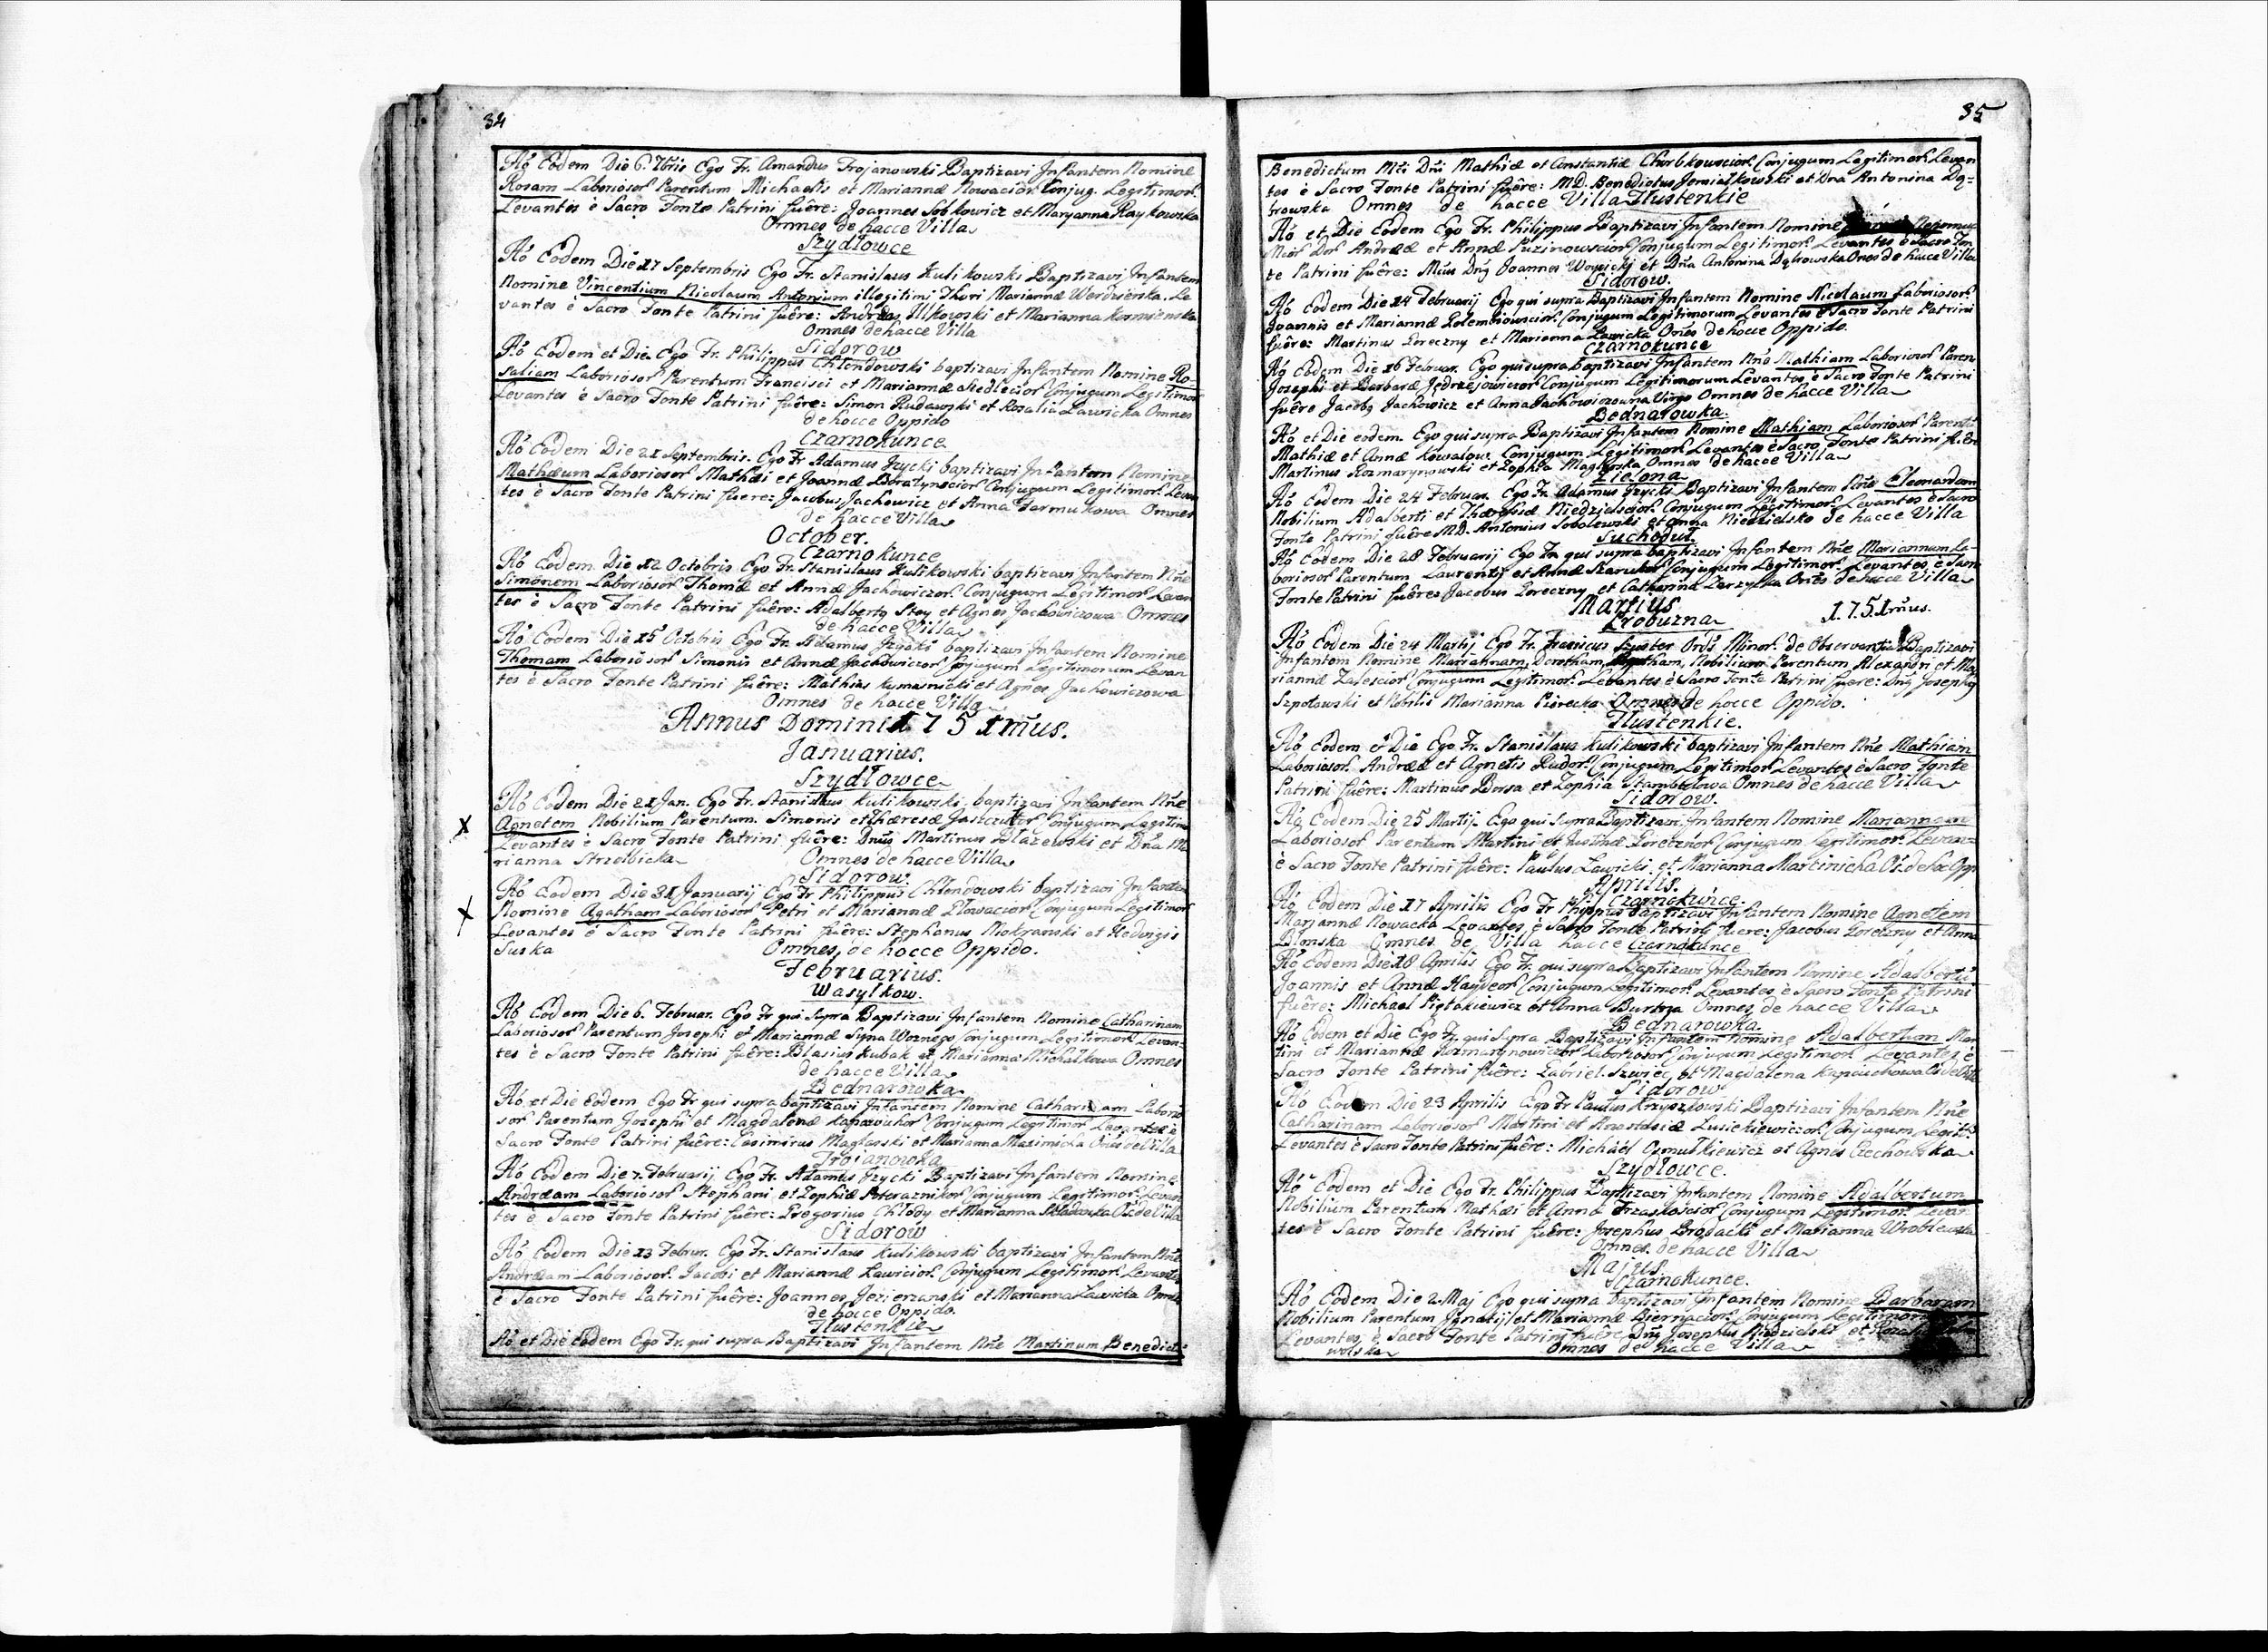 34
Aō Eodem Die 6. 7bris Ego Fr. Amandus Trojanowski Baptizavi Infantem Nomine
Rosam Laboriosor̃ Parentum Michaelis et Mariannæ Nowacior̃. Conjug. Legitimor̃.
Levantes è Sacro Fonte Patrini fuêre: Joannes Sobkowicz et Maryanna Raykowska
Omnes de hacce Villa
Szydłowce
Aō Eodem Die 17 Septembris Ego Fr. Stanislaus Kulikowski Baptizavi Infantem
Nomine Vincentium Nicolaum Antonium illegitimi Thori Mariannæ Werdzienska. Le
vantes è Sacro Fonte Patrini fuêre: Andreas Illkowski et Marianna
Omnes de hacce Villa
Sidorow
Aō Eodem et Die Ego Fr. Philippus Chłendowski baptizavi Infantem Nomine Ro-
saliam Laboriosor̃ Parentum Francisci et Mariannæ Siedlecior̃ Conjugum Legitimor̃
Levantes è Sacro Fonte Patrini fuêre: Simon Rudawski et Rosalia Ławicka Omnes
de hocce Oppido
Czarnokunce
Aō Eodem Die 21 Septembris. Ego Fr Adamus Jzycki baptizavi Infantem Nomine
Mathæum Laboriosor̃ Mathæi et Joannæ Conjugum Legitimor̃. Levan
tes è Sacro Fonte Patrini fuere: Jacobus Jachowicz et Anna Jarmukowa Omnes
de hacce Villa
October.
Czarnokunce
Aō Eodem Die 12 Octobris Ego Fr. Stanislaus Kulikowski baptizavi Infantem Nñe
Simonem Laboriosor̃ Thomæ et Annæ Jachowiczor̃ Conjugum Legitimor̃ Levan
tes è Sacro Fonte Patrini fuêre: Adalbertg Stey et Agnes Jachowiczowa Omnes
de hacce Villa
Aō Eodem Die 15 Octobris Ego Fr. Adamus Jzycki baptizavi Infantem Nomine
Thomam Laboriosor̃ Simonis et Annæ Jachowiczor̃ Conjugum Legitimorum Levan
tes è Sacro Fonte Patrini fuêre: Mathias Kymasnicki et Agnes Jachowiczowa
Omnes de hacce Villa
Annus Domini 1751mũs.
Januarius.
Szydłowce
Aō Eodem Die 21 Jan. Ego Fr. Stanislaus Kulikowski baptizavi Infantem Nñe
X Agnetem Nobilium Parentum. Simonis et Thæresæ Conjugum Legitim
Levantes è Sacro Fonte Patrini fuêre: Dnũs Martinus Błazewski et Dña Ma
rianna Strzelbicka Omnes de hacce Villa
Sidorow.
Aō Eodem Die 31 Januarij Ego Fr Philippus Chłendowski baptizavi Infantem
X Nomine Agatham Laboriosor̃ Petri et Mariannæ Głowacior̃ Conjugum Legitimor̃
Levantes è Sacro Fonte Patrini fuêre: Stephanus Mokranski et Hedvigis
Suska Omnes de hocce Oppido.
Februarius.
Wasylkow.
Aō Eodem Die 6. Februar. Ego Fr qui supra Baptizavi Infantem Nomine Catharinam
Laboriosor̃ Parentum Josephi et Mariannæ Syna Woznego Conjugum Legitimor̃ Levan-
tes è Sacro Fonte Patrini fuêre: Blasius Kubak et Marianna Michałkowa Omnes
de hacce Villa
Bednarowka
Aō et Die Eodem Ego Fr qui supra baptizavi Infantem Nomine Catharinam Laborio
sor̃ Parentum Josephi et Magdalenæ Conjugum Legitimor̃ Levantes è
Sacro Fonte Patrini fuêre: Casimirus Maglarski et Marianna Omes de Villa
Trojanowka
Aō Eodem Die 7. Februarij Ego Fr. Adamus Jzycki Baptizavi Infantem Nomine
Andræam Laboriosor̃ Stephani et Zophiæ Conjugum Legitimor̃ Levan
tes è Sacro Fonte Patrini fuêre: Gregorius Chłody et Marianna Składanka Oēs de Villa
Sidorow
Aō Eodem Die 13 Februr. Ego Fr. Stanislaus Kulikowski baptizavi Infantem Nñe
Andræam Laboriosor̃. Jacobi et Mariannæ Ławicior̃ Conjugum Legitimor̃ Levantes
è Sacro Fonte Patrini fuêre: Joannes Jezierzanski et Marianna Ławicka Omnes
de hocce Oppido.
Tłustenkie
Aō et Die Eodem Ego Fr. qui supra Baptizavi Infantem Nñe Martinum Benedict:
35
Benedictum Mči Dnĩ Mathiæ et Constantiæ Chrobkowscior̃ Conjugum Legitimor̃ Levan
tes è Sacro Fonte Patrini fuêre: MD. Benedictus Jemiałkowski et Dna Antonina Dą=
browska Omnes de hacce Villa Tłustenkie
Aō et Die Eodem Ego Fr. Philippus Baptizavi Infantem Nomine
Mcor̃ Dor̃ Andreæ et Annæ Puzinowscior̃ Conjugum Legitimor̃ Levantes è Sacro Fon
te Patrini fuêre: Mcus Dng Joannes Woynicki et Dña Antonina Dąbrowska Ones de hacce Villa
Sidorow.
Aō Eodem Die 14 Februarij Ego qui supra Baptizavi Infantem Nomine Nicolaum Laboriosor̃
Joannis et Mariannæ Gołembiowscior̃ Conjugum Legitimorum Levantes è Sacro Fonte Patrini
fuêre: Martinus Goreczny et Marianna Ławicka Ones de hocce Oppido.
Czarnokunce
Aō Eodem Die 16 Februar. Ego qui supra baptizavi Infantem Nñe Mathiam Laboriosor̃ Paren
Josephi et Barbaræ Jędrzejowiczor̃ Conjugum Legitimorum Levantes è Sacro Fonte Patrini
fuêre Jacobg Jachowicz et Anna Jachowiczowna Virgo Omnes de hacce Villa
Bednarowka.
Aō et Die eodem. Ego qui supra Baptizavi Infantem Nomine Mathiam Laboriosor̃ Parentũ
Mathiæ et Annæ Kowalow. Conjugum Legitimor̃ Levantes è Sacro Fonte Patrini fuêre
Martinus Rozmarynowski et Zophia Maglarska Omnes de hacce Villa
Zielona
Aō Eodem Die 24 Februar. Ego Fr. Adamus Jzycki Baptizavi Infantem Nñe Eleonardam
Nobilium Adalberti et Thæresiæ Niedzielscior̃ Conjugum Legitimor̃. Levantes è Sacro
Fonte Patrini fuêre MD. Antonius Sobolewski et Anna Niedzielska de hacce Villa
Suchodoł.
Aō Eodem Die 28 Februarij Ego Fr. qui supra baptizavi Infantem Nñe Mariannam La-
boriosor̃ Parentum Laurentij et Annæ Conjugum Legitimor̃. Levantes è Sacro
Fonte Patrini fuêre: Jacobus Goreczny et Catharina Ones de hacce Villa
Martius 1751mus.
Probuzna
Aō Eodem Die 24 Martij Ego Fr. Szuster Ords Minor̃. de Observantia Baptizavi
Infantem Nomine Mariannam, Dorotham, Agatham, Nobilium Parentum Alexandri et Ma
riannæ Zalescior̃ Conjugum Legitimor̃. Levantes è Sacro Fonte Patrini fuere: Dng Josephg
Szpotawski et Nobilis Marianna Piorecka Omnes de hocce Oppido.
Tłustenkie.
Aō Eodem & Die Ego Fr. Stanislaus Kulikowski baptizavi Infantem Nñe Mathiam
Laboriosor̃. Andreæ et Agnetis Rudor̃. Conjugum Legitimor̃ Levantes è Sacro Fonte
Patrini fuêre: Martinus Borsa et Zophia Omnes de hacce Villa
Sidorow.
Aō Eodem Die 25 Martij. Ego qui supra Baptizavi Infantem Nomine Mariannam
Laboriosor̃ Parentum Martini et Justinæ Conjugum Legitimor̃. Levan=
è Sacro Fonte Patrini fuêre: Paulus Ławicki et Marianna Marcinicha Oēs de hoc Opp.
Aprilis.
Czarnokunce.
Aō Eodem Die 17 Aprilis Ego Fr Phippus baptizavi Infantem Nomine Agnetem
Mariannæ Nowacka Levantes è Sacro Fonte Patrini fuere: Jacobus Goreczny et Anna
Blonska Omnes de Villa hacce Czarnokunce
Aō Eodem Die 18 Aprilis Ego Fr. qui supra Baptizavi Infantem Nomine Adalbertũ
Joannis et Annæ Haydeor̃ Conjugum Legitimor̃. Levantes è Sacro Fonte Patrini
fuêre: Michael et Anna Omnes de hacce Villa
Bednarowka.
Aō Eodem et Die Ego Fr. qui supra Baptizavi Infantem Nomine Adalbertum Mar
tini et Mariannæ Rozmarynowiczor̃ Laboriosor̃ Conjugum Legitimor̃ Levantes è
Sacro Fonte Patrini fuêre: Gabriel Szwiec et Magdalena Kapciuchowa
Sidorow
Aō Eodem Die 23 Aprilis Ego Fr Paulus Krzyszkowski Baptizavi Infantem Nñe
Catharinam Laboriosor̃ Martini et Anastasiæ Conjugum Legit:
Levantes è Sacro Fonte Patrini fuêre: Michaël et Agnes Czechowska
Szydłowce.
Aō Eodem et Die Ego Fr. Philippus Baptizavi Infantem Nomine Adalbertum
Nobilium Parentum Mathæi et Annæ Trzaskoscior̃ Conjugum Legitimor̃. Levan
tes è Sacro Fonte Patrini fuêre: Josephus Brodacki et Marianna Wroblewska
Omnes de hacce Villa
Majus.
Czarnokunce.
Aō Eodem Die 2. Maj Ego qui supra baptizavi Infantem Nomine Barbaram
Nobilium Parentum Jgnatij et Mariannæ Biernacior̃. Conjugum Legitimor̃
Levantes è Sacro Fonte Patrini fuêre Dng Josephus Niedzielski et
wolska Omnes de hacce Villa